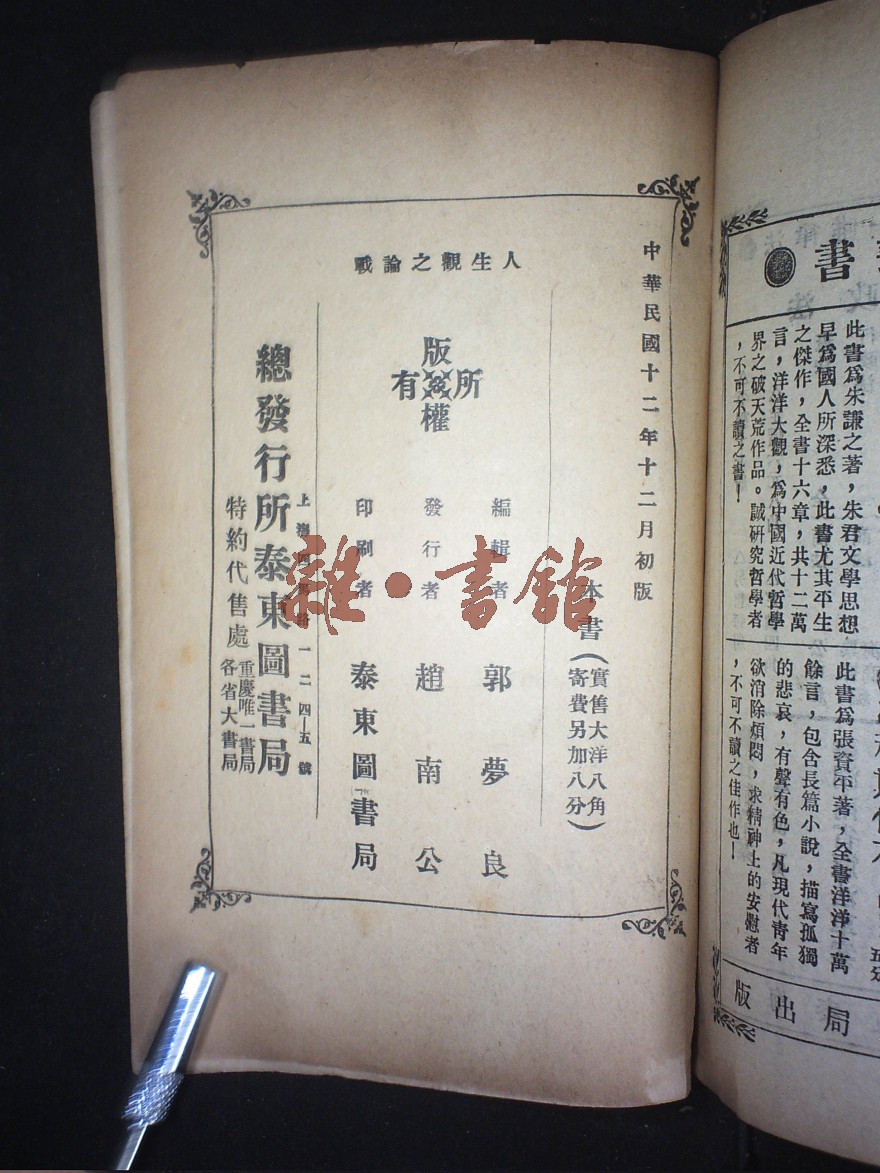 中華民國十二年十二月初版
人生觀之論戰
本書(實售大洋八角
寄費另加八分)
版權所有
編輯者 郭夢良
發行者 趙南公
印刷者 泰東圖書局
上海四馬路一二四—五號
總發行所泰東圖書局
特約代售處 重慶唯一書局
各省大書局
雜·書館
書
此書爲朱謙之著，朱君文學思想
早爲國人所深悉，此書尤其平生
之傑作，全書十六章，共十二萬
言，洋洋大觀，爲中國近代哲學
界之破天荒作品。誠研究哲學者
，不可不讀之書！
此書爲張資平著，全書洋洋十萬
餘言，包含長篇小說，描寫孤獨
的悲哀，有聲有色，凡現代靑年
欲消除煩悶，求精神上的安慰者
，不可不讀之佳作也！
局出版